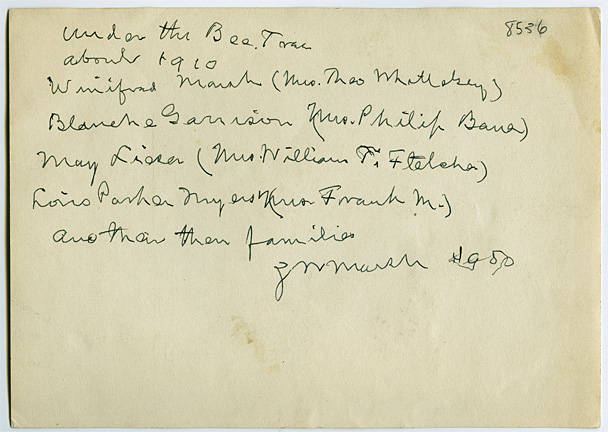 8536
Under the Bee. Tree
about 1910
Winifred Marsh (Mrs. Theo Whittelsey)
Blanche Garrison (Mrs. Philip Bauer)
May Lieser (Mrs. William T. Fletcher)
Lois Parker Myers (Mrs. Frank M.)
and their families
Marsh 1950